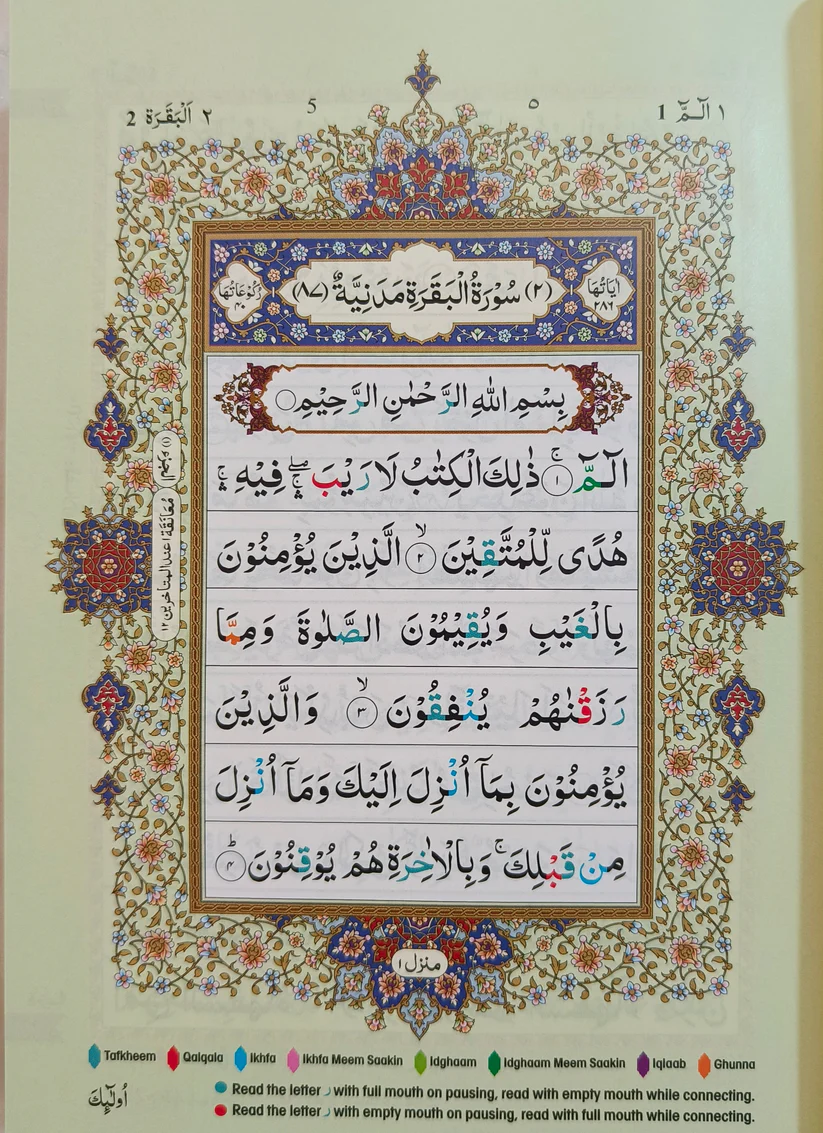 ٢ اَلْبَقَرَة 2
5
٥
١ الٓـمّٓ 1
اٰيَاتُهَا ٢٨٦
(٢) سُوْرَةُ الْبَقَرَةِ مَدَنِيَّةٌ (٨٧)
رُكُوْعَاتُهَا ٤٠
بِسْمِ اللهِ الرَّحْمٰنِ الرَّحِيْمِ
الٓـمّٓ ۚ ﴿١﴾ ذٰلِكَ الْكِتٰبُ لَا رَيْبَ ۛۖ فِيْهِ ۛۚ
هُدًى لِّلْمُتَّقِيْنَ ۙ ﴿٢﴾ الَّذِيْنَ يُؤْمِنُوْنَ
بِالْغَيْبِ وَيُقِيْمُوْنَ الصَّلٰوةَ وَمِمَّا
رَزَقْنٰهُمْ يُنْفِقُوْنَ ۙ ﴿٣﴾ وَالَّذِيْنَ
يُؤْمِنُوْنَ بِمَآ اُنْزِلَ اِلَيْكَ وَمَآ اُنْزِلَ
مِنْ قَبْلِكَ ۚ وَبِالْاٰخِرَةِ هُمْ يُوْقِنُوْنَ ؕ ﴿٤﴾
مُعَانَقَة عند المتاخرين ١٢
منزل ١
Tafkheem Qalqala Ikhfa Ikhfa Meem Saakin Idghaam Idghaam Meem Saakin Iqlaab Ghunna
Read the letter ر with full mouth on pausing, read with empty mouth while connecting.
Read the letter ر with empty mouth on pausing, read with full mouth while connecting.
اُولٰٓئِكَ